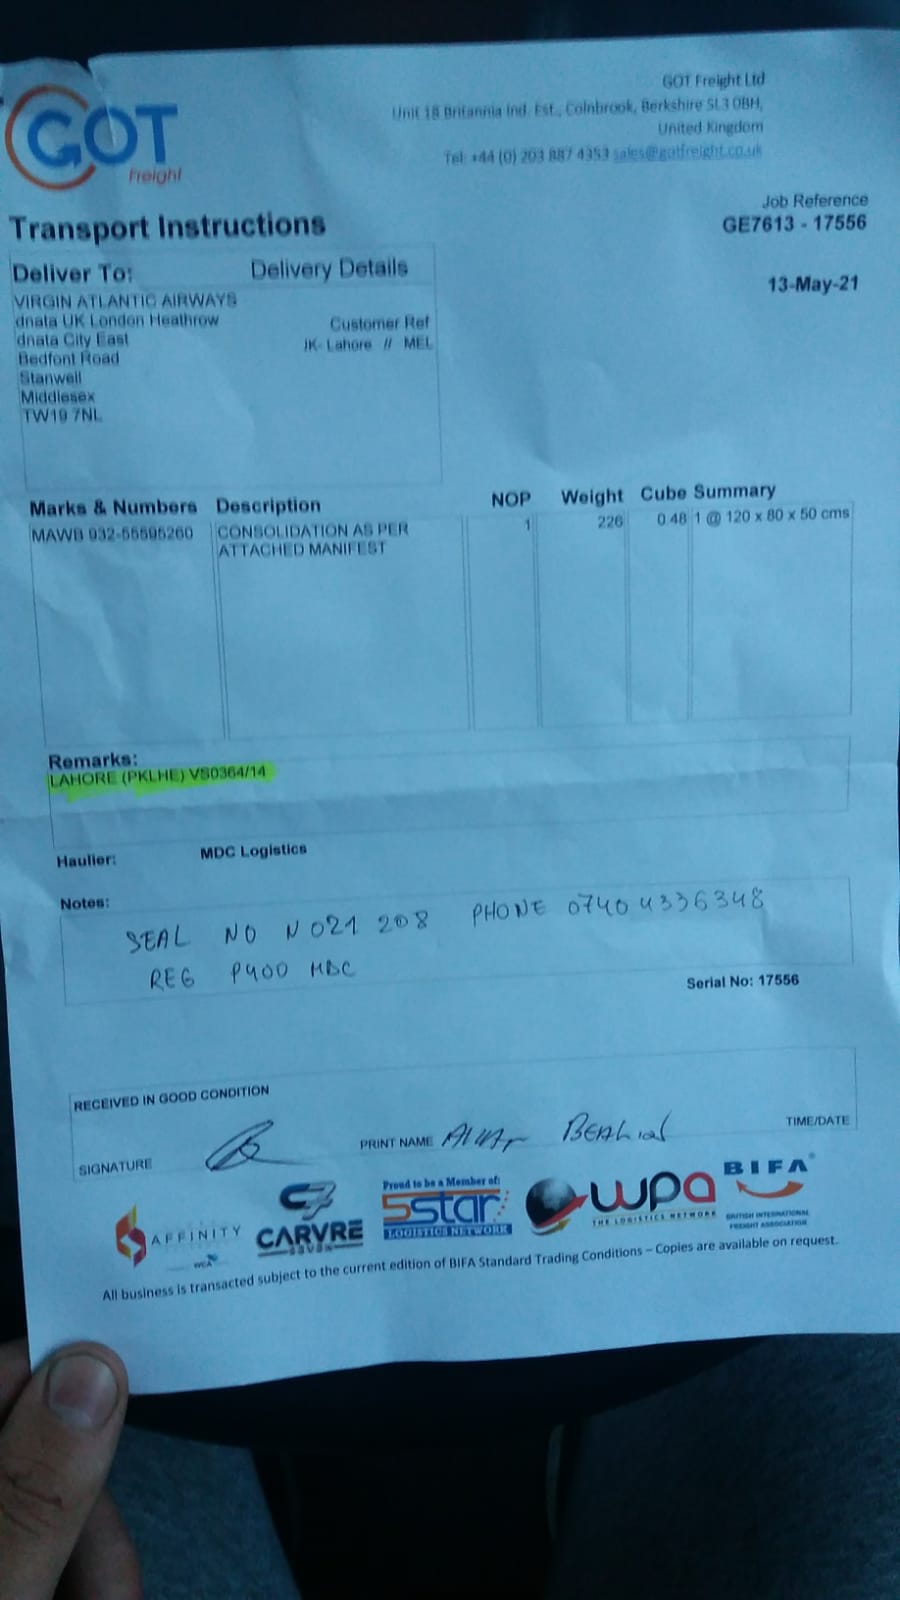 GOT
Freight
GOT Freight Ltd
Unit 18 Britannia Ind. Est., Colnbrook, Berkshire SL3 0BH,
United Kingdom
Tel: +44 (0) 203 887 4353 sales@gotfreight.co.uk
Job Reference
GE7613 - 17556
13-May-21
Transport Instructions
Deliver To: Delivery Details
VIRGIN ATLANTIC AIRWAYS
dnata UK London Heathrow
dnata City East
Bedfont Road
Stanwell
Middlesex
TW19 7NL
Customer Ref
Lahore // MEL
Marks & Numbers Description NOP Weight Cube Summary
MAWB 932-55595260 CONSOLIDATION AS PER 1 226 0.48 1 @ 120 x 80 x 50 cms
ATTACHED MANIFEST
Remarks:
LAHORE (PKLHE) VS0364/14
Haulier: MDC Logistics
Notes:
SEAL NO N021 208 PHONE 07404336348
REG P400 MDC
Serial No: 17556
RECEIVED IN GOOD CONDITION
SIGNATURE
PRINT NAME
TIME/DATE
AFFINITY
WCA
CARVRE
SEVEN
Proud to be a Member of:
5star
LOGISTICS NETWORK
wpa
THE LOGISTICS NETWORK
BIFA
BRITISH INTERNATIONAL
FREIGHT ASSOCIATION
All business is transacted subject to the current edition of BIFA Standard Trading Conditions – Copies are available on request.